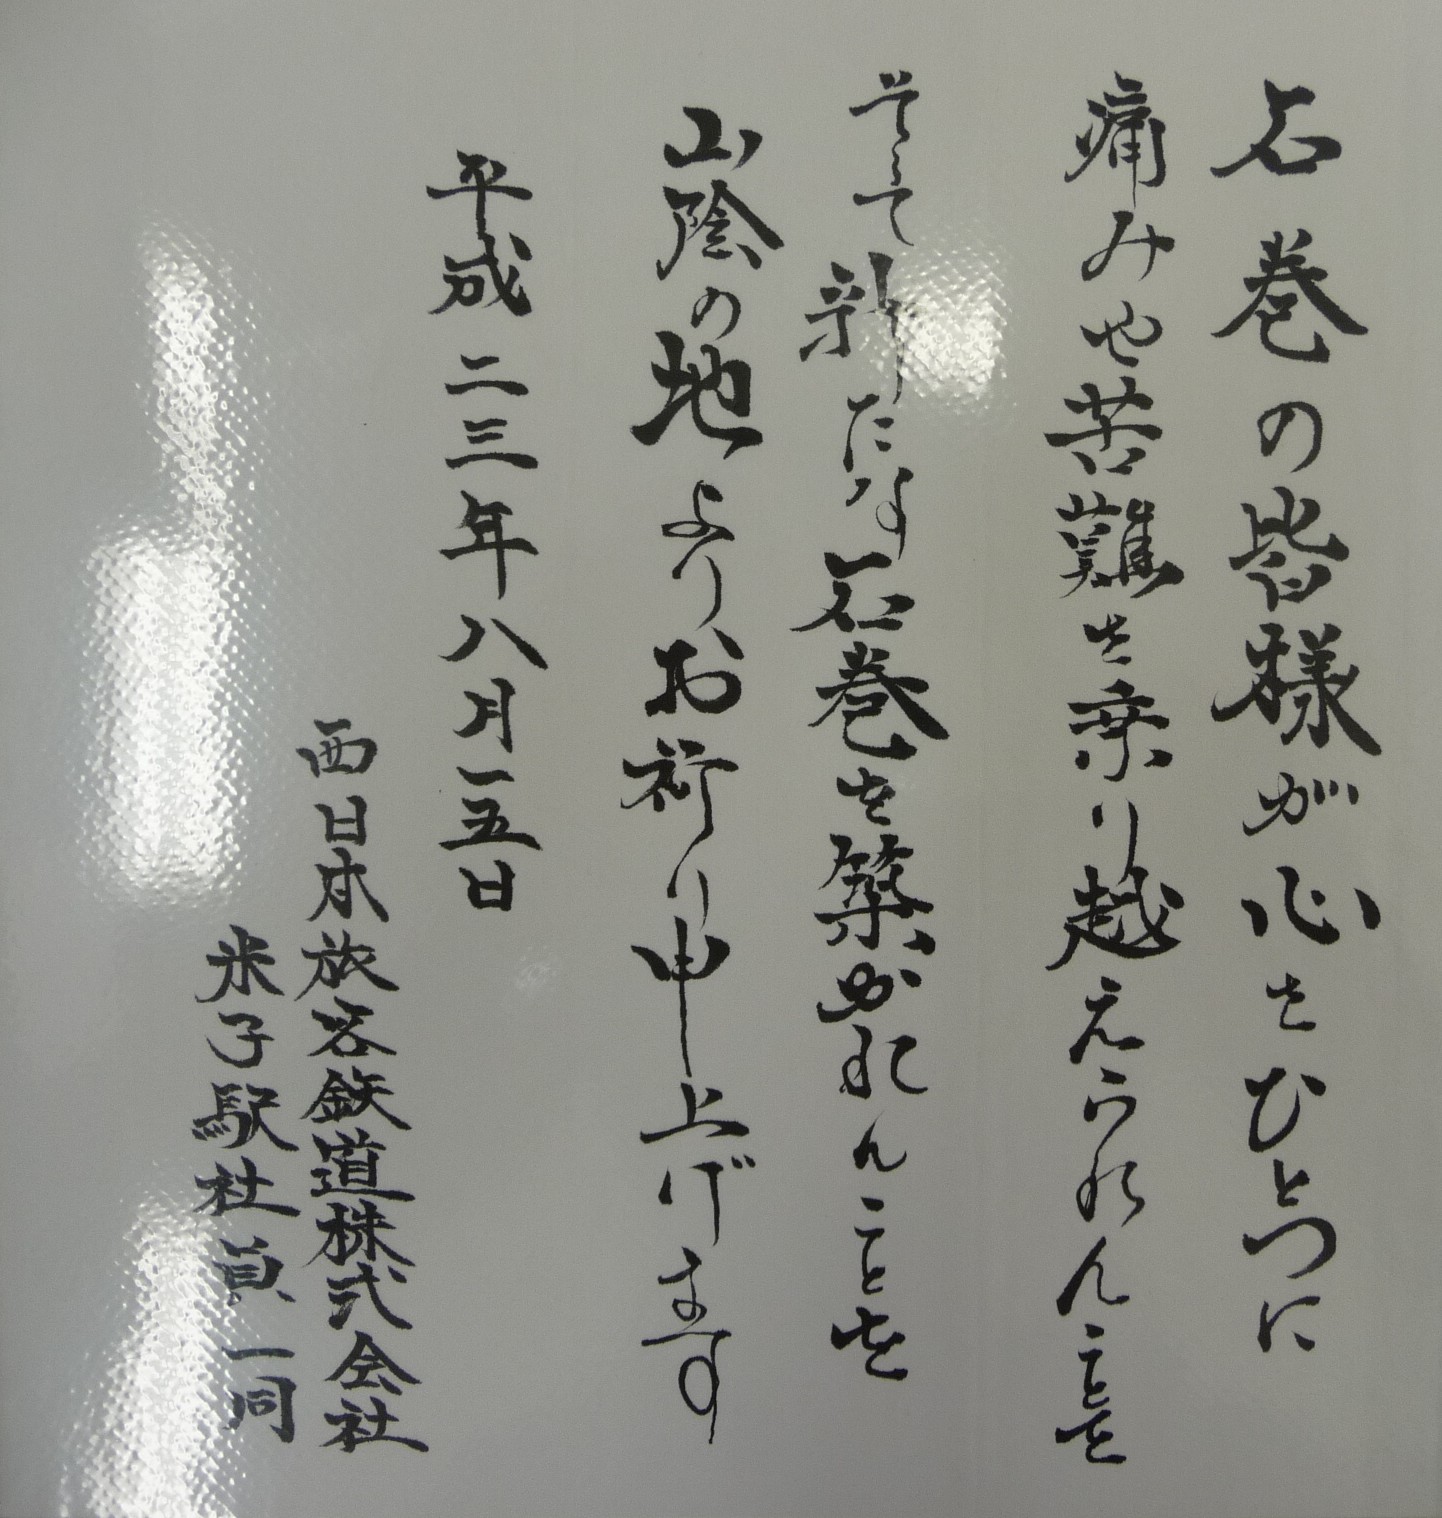 石巻の皆様が心をひとつに
痛みや苦難を乗り越えられんことを
そして新たな石巻を築かれんことを
山陰の地よりお祈り申上げます
平成二三年八月一五日
西日本旅客鉄道株式会社
米子駅社員一同